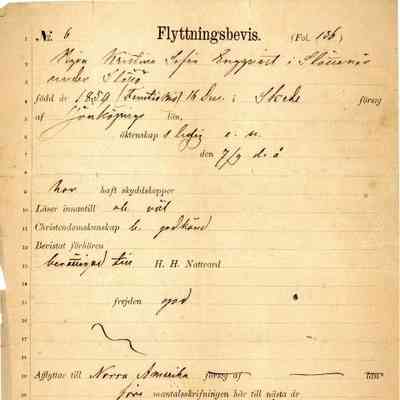 № 6 Flyttningsbevis. (Fol. 136)
Pigan Kristina Sofia Engqvist i Slättenäs
under Slättö
född år 1859 (Femtio nio) 16 Dec. i Skede förs:g
af Jönköpings län,
äktenskap s ledig
den 7/9 d. å
har haft skyddskoppor
Läser innantill väl
Christendomskunskap godkänd
Bevistat förhören
berättigad till H. H. Nattvard
frejden god
Afflyttar till Norra Amerika förs:g af län
före mantalsskrifningen här till nästa år